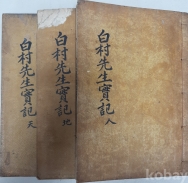 白村先生實記 人
白村先生實記 地
白村先生實記 天
kobay